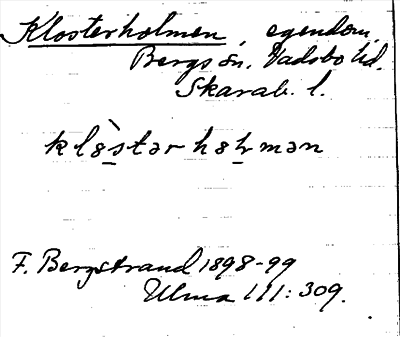 Klosterholmen, egendom,
Bergs sn. Vadsbo hd.
Skarab. l.
klòstər holmən
F. Bergstrand 1898-99
Ulma 111: 309.